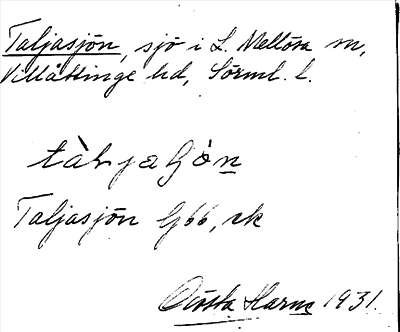 Taljasjön, sjö i L. Mellösa sn,
Villåttinge hd, Sörml. l.
Taljasjön G66, ek
Gösta Harns 1931.